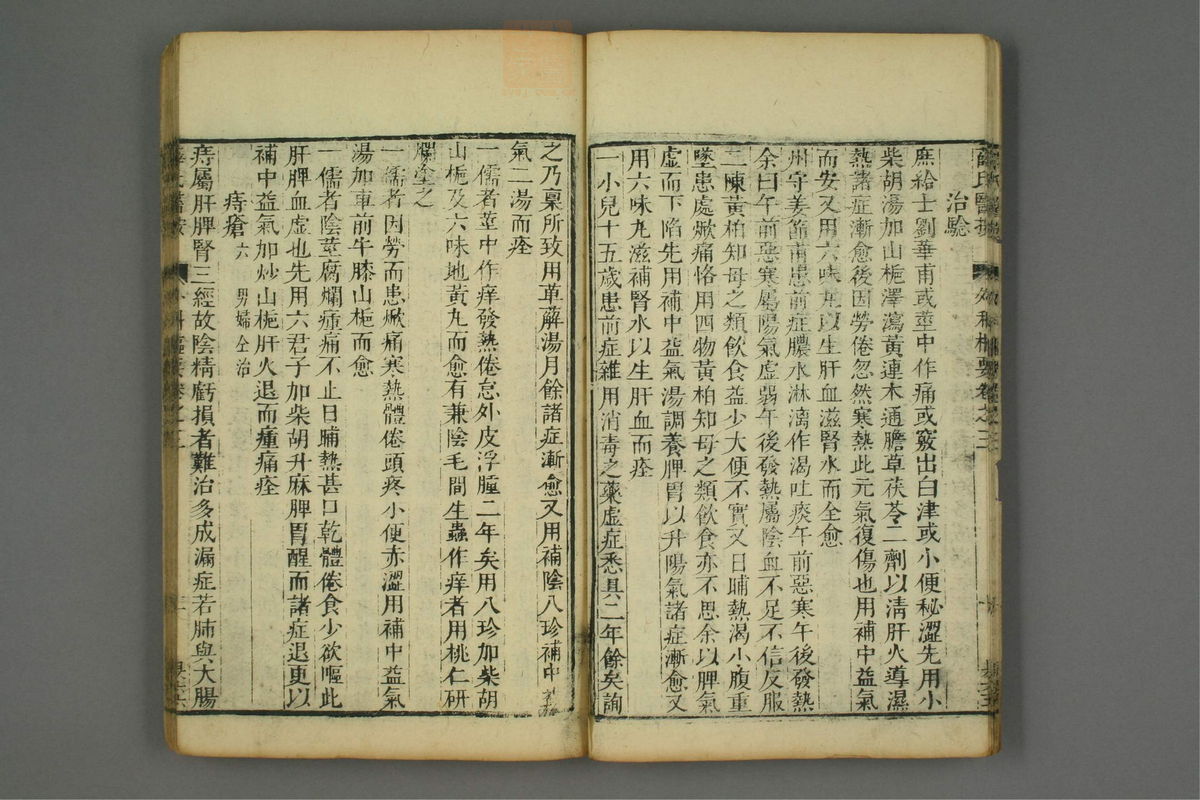 薛氏醫按 外科樞要卷之三
治驗
庶給士劉華甫或莖中作痛或竅出白津或小便秘澀先用小
柴胡湯加山梔澤瀉黃連木通膽草茯苓二劑以清肝火導濕
熱諸症漸愈後因勞倦忽然寒熱此元氣復傷也用補中益氣
而安又用六味丸以生肝血滋腎水而全愈
州守姜節甫患前症膿水淋漓作渴吐痰午前惡寒午後發熱
余曰午前惡寒屬陽氣虛弱午後發熱屬陰血不足不信反服
二陳黃柏知母之類飲食益少大便不實又日晡熱渴小腹重
墜患處焮痛恪用四物黃柏知母之類飲食亦不思余以脾氣
虛而下陷先用補中益氣湯調養脾胃以升陽氣諸症漸愈又
用六味丸滋補腎水以生肝血而痊
一小兒十五歲患前症雜用消毒之藥虛症悉具二年餘矣詢
之乃稟所致用萆薢湯月餘諸症漸愈又用補陰八珍補中
氣二湯而痊
一儒者莖中作痒發熱倦怠外皮浮腫二年矣用八珍加柴胡
山梔及六味地黃丸而愈有兼陰毛間生蟲作痒者用桃仁研
爛塗之
一儒者因勞而患焮痛寒熱體倦頭疼小便赤澀用補中益氣
湯加車前牛膝山梔而愈
一儒者陰莖腐爛腫痛不止日晡熱甚口乾體倦食少欲嘔此
肝脾血虛也先用六君子加柴胡升麻脾胃醒而諸症退更以
補中益氣加炒山梔肝火退而腫痛痊
痔瘡 六 男婦仝治
痔屬肝脾腎三經故陰精虧損者難治多成漏症若肺與大腸